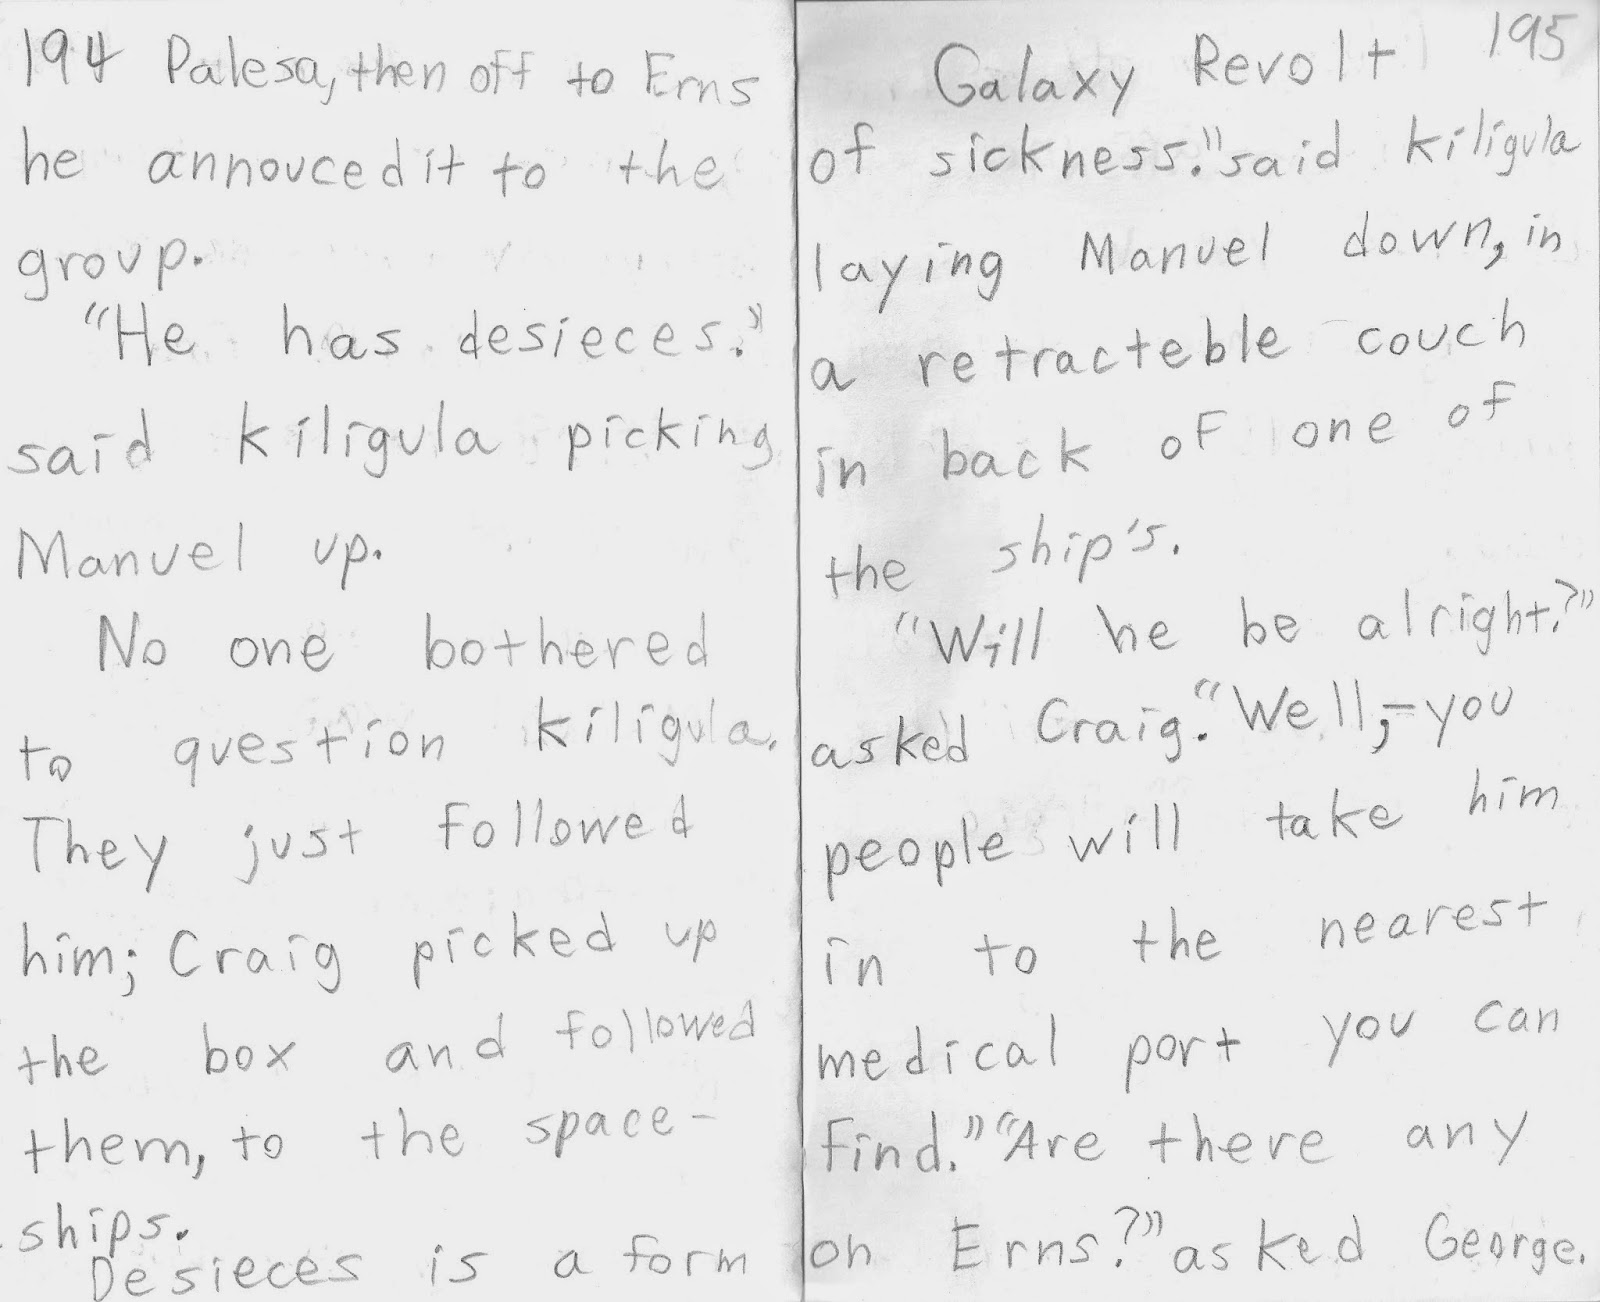 194 Palesa, then off to Erns
he annoucedit to the
group.
"He has desieces."
said kiligula picking
Manuel up.
No one bothered
to question kiligula.
They just followed
him; Craig picked up
the box and followed
them, to the space-
ships.
Desieces is a form
Galaxy Revolt 195
of sickness." said kiligula
laying Manuel down, in
a retracteble couch
in back of one of
the ship's.
"Will he be alright?"
asked Craig. "Well,-you
people will take him
in to the nearest
medical port you can
find." "Are there any
on Erns?" asked George.